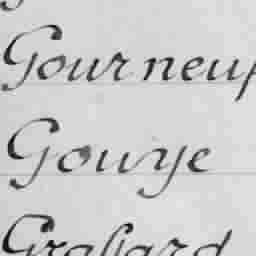 Gourneuf
Gouye
Grabard